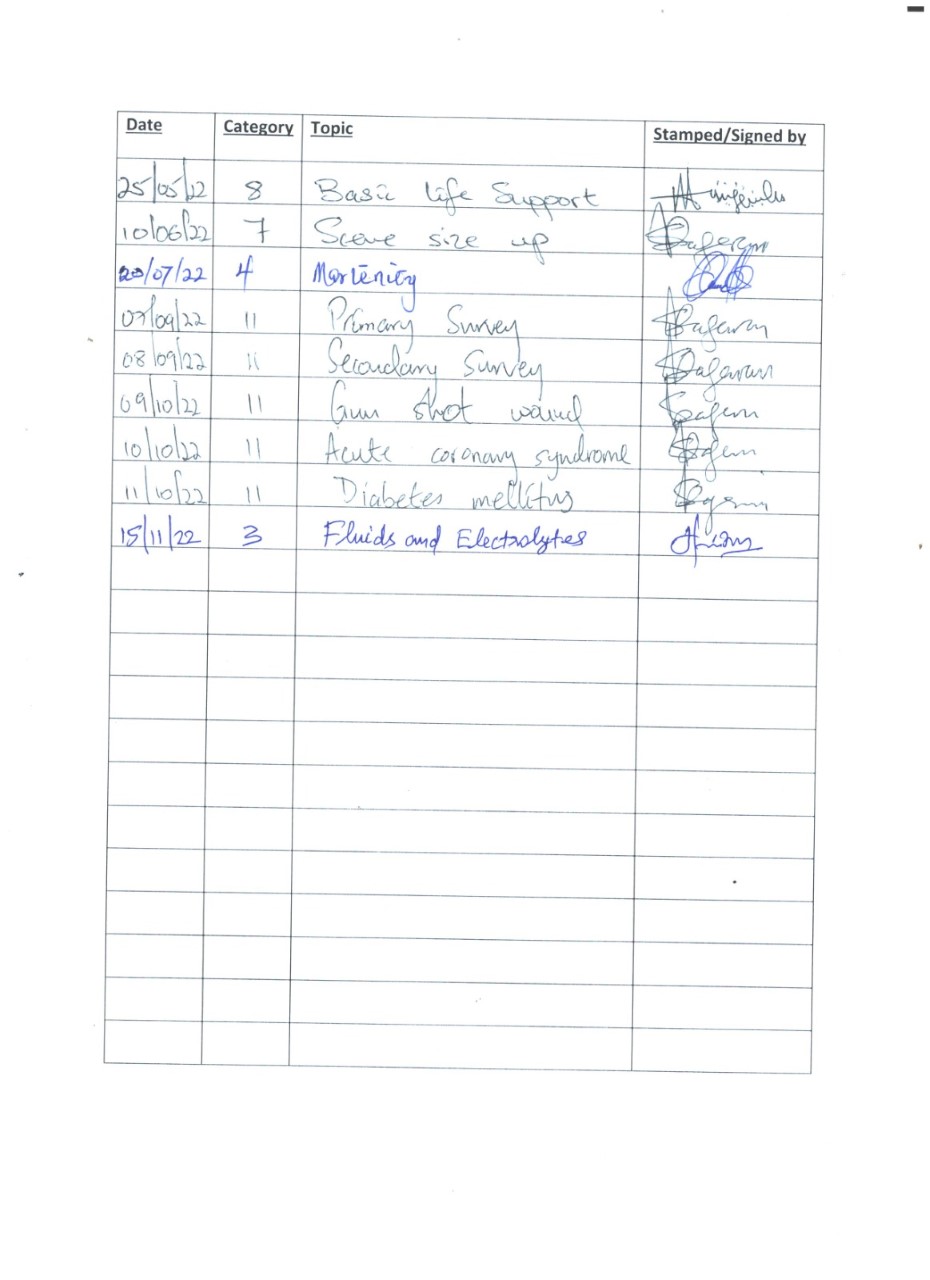 Date Category Topic Stamped/Signed by
25/05/22 8 Basic life Support
10/06/22 7 Scene size up
20/07/22 4 Marternity
07/09/22 11 Primary Survey
08/09/22 11 Secondary Survey
09/10/22 11 Gun shot wound
10/10/22 11 Acute coronary syndrome
11/10/22 11 Diabetes mellitus
15/11/22 3 Fluids and Electrolytes